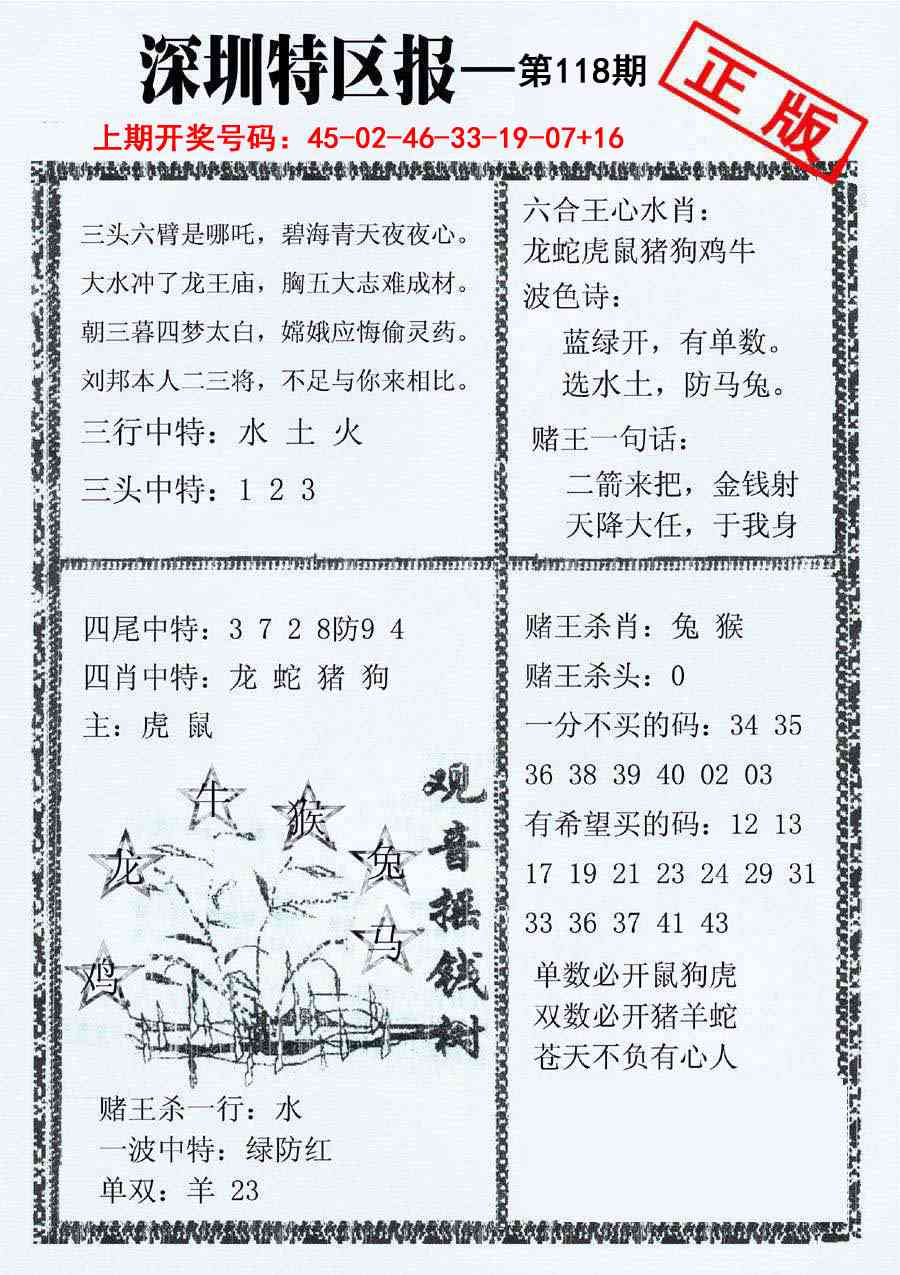 深圳特区报—第118期
正版
上期开奖号码：45-02-46-33-19-07+16
三头六臂是哪吒，碧海青天夜夜心。
大水冲了龙王庙，胸五大志难成材。
朝三暮四梦太白，嫦娥应悔偷灵药。
刘邦本人二三将，不足与你来相比。
三行中特：水 土 火
三头中特：1 2 3
六合王心水肖：
龙蛇虎鼠猪狗鸡牛
波色诗：
蓝绿开，有单数。
选水土，防马兔。
赌王一句话：
二箭来把，金钱射
天降大任，于我身
四尾中特：3 7 2 8防9 4
四肖中特：龙 蛇 猪 狗
主：虎 鼠
牛
猴
龙
兔
马
鸡
观音摇钱树
赌王杀一行：水
一波中特：绿防红
单双：羊 23
赌王杀肖：兔 猴
赌王杀头：0
一分不买的码：34 35
36 38 39 40 02 03
有希望买的码：12 13
17 19 21 23 24 29 31
33 36 37 41 43
单数必开鼠狗虎
双数必开猪羊蛇
苍天不负有心人